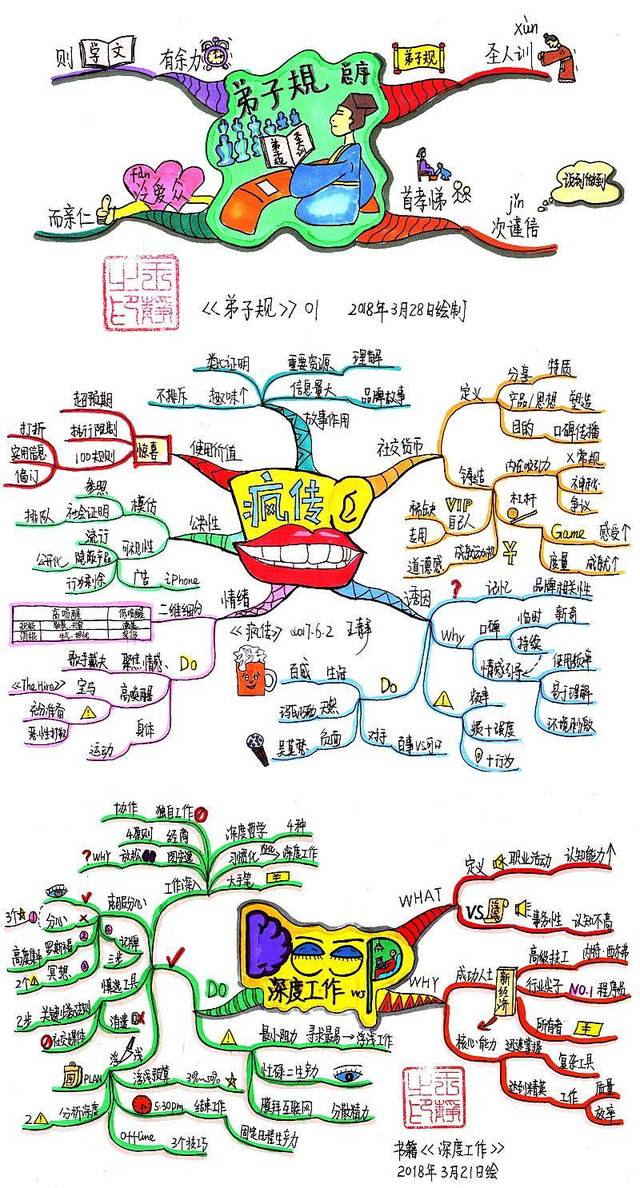 则学文
有余力
弟子规
总序
弟子规
xùn
圣人训
fàn
泛爱众
而亲仁
首孝悌
jǐn
次谨信
<<弟子规>> 01 2018年3月28日绘制
类比证明
重要资源
理解
不排斥
趣味个
信息量大
品牌故事
故事作用
超预期
打折
执行限制
惊喜
实用信息
100规则
偏门
使用价值
社交货币
定义
分享
特质
产品/思想
塑造
目的
口碑传播
铸造
内在吸引力
X常规
神秘
争议
杠杆
Game
感受个
度量
成就个
VIP
自己人
稀缺
专用
道德感
疯传
参照
模仿
社会证明
排队
公共性
流行
可视性
公开化
行为剩余
广告
iPhone
情绪
二维细分
高唤醒
低唤醒
Do
聚焦情感
高唤醒
宝马
<<The Hire>>
充分准备
身体
运动
<<疯传>> 2017.6.2 王静
诱因
?
记忆
品牌相关性
Why
口碑
临时
新奇
持续
情感引导
使用频率
易于理解
环境刺激
频率
频+强度
+行为
Do
百威
生活
天然
负面
对抗
百事VS可口
深度工作
WHAT
定义
职业活动
认知能力↑
VS
事务性
认知不高
WHY
成功人士
新经济
高级技工
行业尖子
NO.1
程序员
所有者
核心能力
迅速掌握
复杂工具
达到精英
工作
质量
效率
Do
工作深入
协作
独自工作
4原则
经商
?WHY
放松
图安逸
深度哲学
4种
习惯化
深度工作
大手笔
远离分心
分心
3个
高度集中
罗斯福
2个
冥想
记牌
三步
慎选工具
2步
关键少数法则
消遣
社交媒体
浮浅
PLAN
浮浅预算
30%~50%
分析深度
5:30pm
结束工作
固定日程生产力
Offline
3个技巧
最小阻力
寻求最易→浮浅工作
忙碌=生产力
膜拜互联网
分散精力
书籍<<深度工作>>
2018年3月21日绘